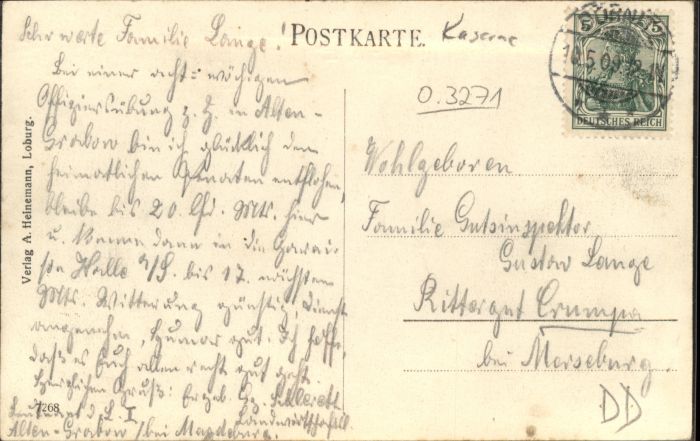 Sehr werte Familie Lange!
POSTKARTE.
Kaserne
Bei einer acht=wöchigen
Offiziersübung z. Z. in Alten-
Grabow bin ich glücklich den
heimatlichen Penaten entflohen,
bleibe bis 20. lfd. Mts. hier
u. komme dann in die Garni-
son Halle a/S. bis 17. nächsten
Mts. Witterung günstig, Dienst
angenehm, Humor gut. Ich hoffe,
daß es Euch allen recht gut geht.
Herzlichen Gruß: Ergeb.
Leutnant d. L. I
Alten-Grabow /bei Magdeburg.
Verlag A. Heinemann, Loburg.
7268
0.3271
5
5
DEUTSCHES REICH
Wohlgeboren
Familie Gutsinspektor
Gustav Lange
Rittergut Crumpa
bei Merseburg.
DD